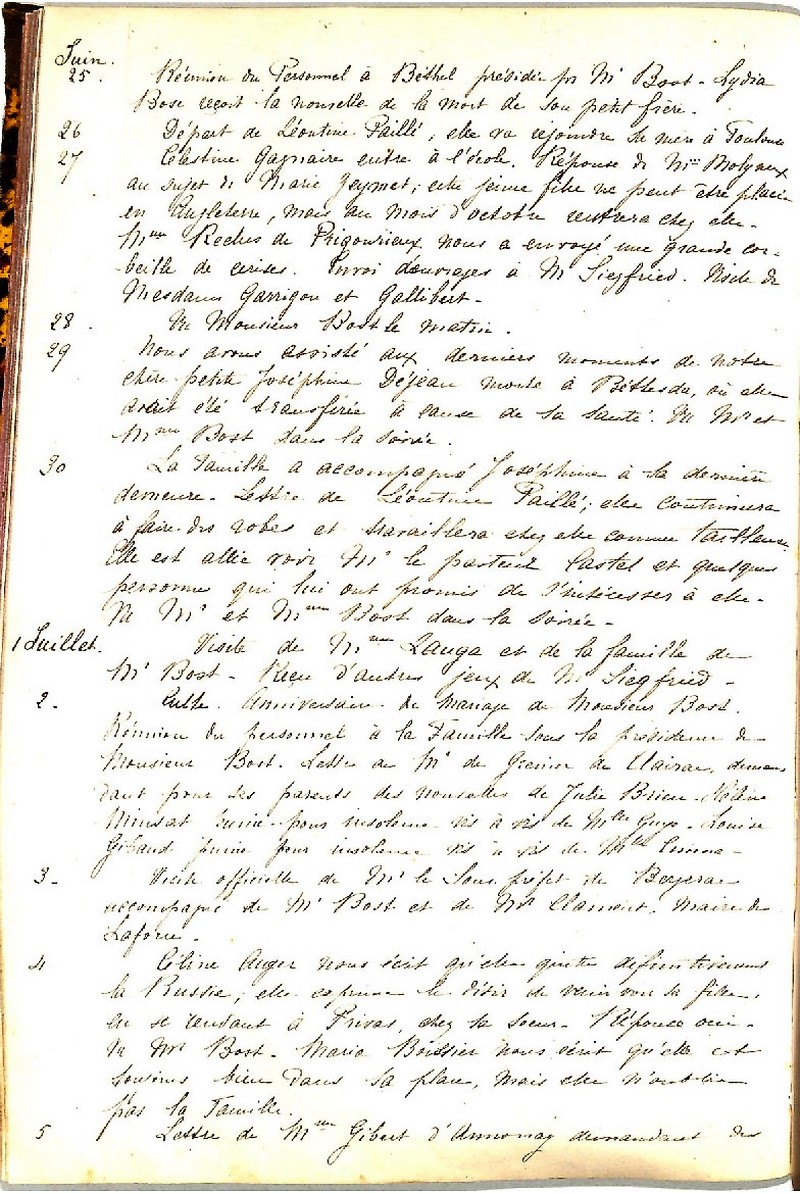 Juin.
25. Réunion du Personnel à Béthel présidée pr Mr Bost - Lydia
Bose reçoit la nouvelle de la mort de son petit frère.
26 Départ de Léontine Paillé, elle va rejoindre sa mère à Toulouse
27 Célestine Gagnaire entre à l'école. Réponse de Mlle Molyneux
au sujet de Marie Jeymet; cette jeune fille ne peut être placée
en Angleterre, mais au mois d'octobre rentrera chez elle.
Mme Reches de Prigourieux nous a envoyé une grande cor-
beille de cerises. Envoi d'ouvrages à Mr Siegfried. Visite de
Mesdames Garrigou et Gallibert -
28. Vu Monsieur Bost le matin.
29 Nous avons assisté aux derniers moments de notre
chère petite Joséphine Déjean morte à Béthesda, où elle
avait été transférée à cause de sa santé. Vu Mr et
Mme Bost dans la soirée.
30 La Famille a accompagné Joséphine à sa dernière
demeure - Lettre de Léontine Paillé; elle continuera
à faire des robes et travaillera chez elle comme tailleuse.
Elle est allée voir Mr le pasteur Castel et quelques
personnes qui lui ont promis de s'intéresser à elle -
Vu Mr et Mme Bost dans la soirée -
1 Juillet. Visite de Mme Lauga et de la famille de
Mr Bost - Reçu d'autres jeux de Mr Siegfried -
2. Culte. Anniversaire du mariage de Monsieur Bost.
Réunion du personnel à la Famille sous la présidence de
Monsieur Bost. Lettre de Mr de Grenier de Clairac, deman-
dant pour ses parents des nouvelles de Julie Brieu -
Minsat punie pour insolence vis à vis de Mlle Guye - Louise
Gibaud punie pour insolence vis à vis de Mlle
3 - Visite officielle de Mr le Sous préfet de Bergerac
accompagné de Mr Bost et de Mr Clament, Maire de
Laforce.
4 Céline Auger nous écrit qu'elle quitte définitivement
la Russie; elle exprime le désir de venir voir sa fille,
en se rendant à Privas, chez sa soeur - Réponse oui -
Vu Mr Bost - Maria Boissier nous écrit qu'elle est
toujours bien dans sa place, mais elle n'oublie
pas la Famille.
5 Lettre de Mme Gibert d'Annonay demandant des